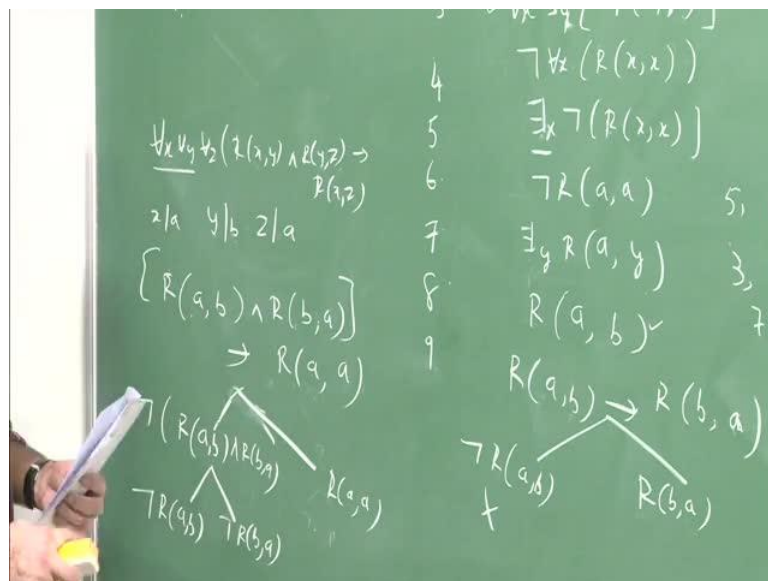 ∀x ∀y ∀z (R(x,y) ∧ R(y,z) →
R(x,z)
x|a y|b z|a
[R(a,b) ∧ R(b,a)]
→ R(a,a)
¬(R(a,b) ∧ R(b,a)) R(a,a)
¬R(a,b) ¬R(b,a)
3
4 ¬∀x (R(x,x))
5 ∃x ¬(R(x,x)]
6 ¬R(a,a) 5,
7 ∃y R(a,y) 3,
8 R(a,b) ✓ 7
9 R(a,b) → R(b,a)
¬R(a,b) R(b,a)